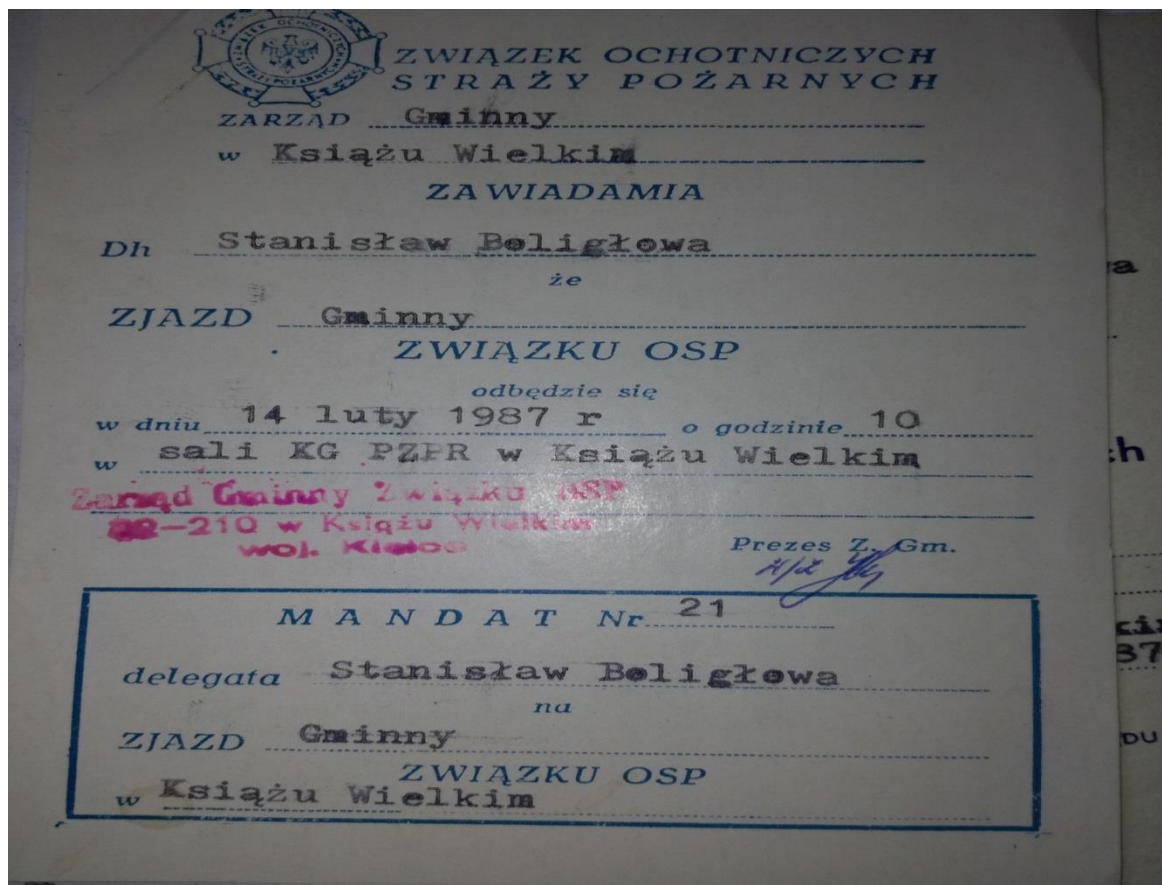 ZWIĄZEK OCHOTNICZYCH
STRAŻY POŻARNYCH
ZARZĄD Gminny
w Książu Wielkim
ZAWIADAMIA
Dh Stanisław Boligłowa
że
ZJAZD Gminny
ZWIĄZKU OSP
odbędzie się
w dniu 14 luty 1987 r o godzinie 10
w sali KG PZPR w Książu Wielkim
Zarząd Gminny Związku OSP
-210 w Książu Wielkim
woj. Kielce
Prezes Z. Gm.
MANDAT Nr 21
delegata Stanisław Boligłowa
na
ZJAZD Gminny
ZWIĄZKU OSP
w Książu Wielkim